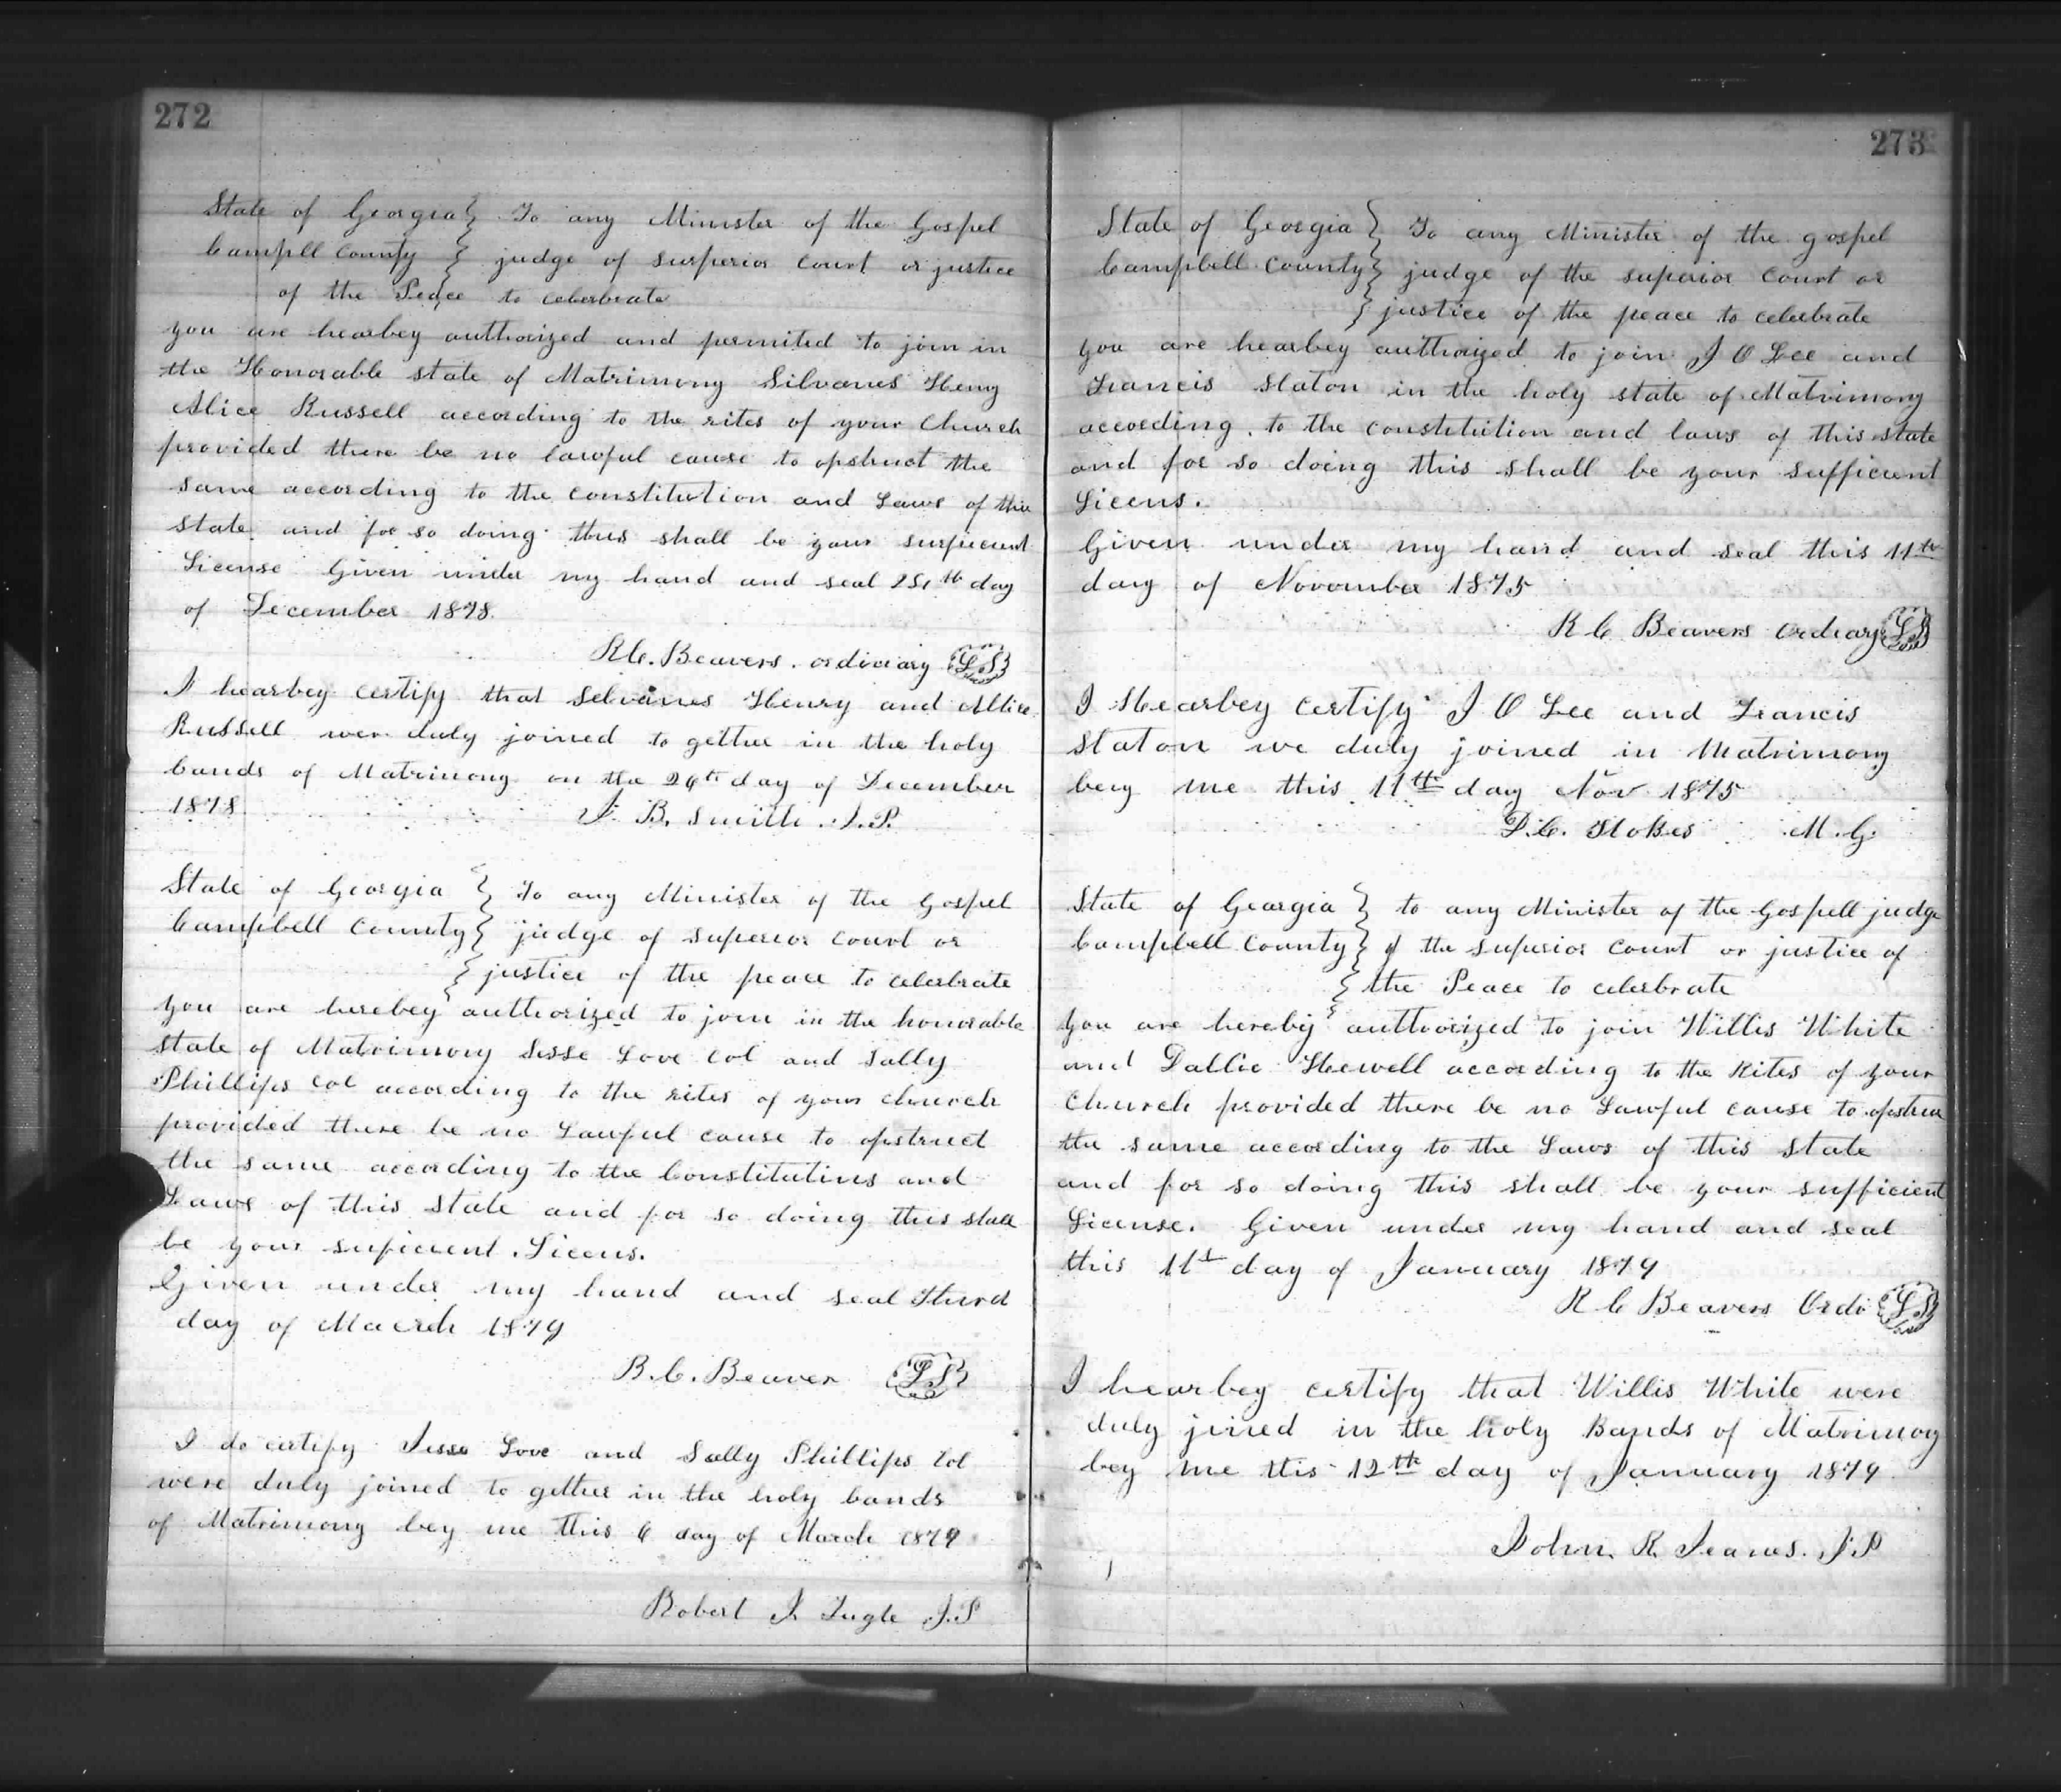 272
State of Georgia } To any Minister of the Gospel
Campll County } judge of surperior court or justice
of the Peace to celerbrate
you are hearbey authorized and permited to join in
the Honorable state of Matrimony Silvanes Heny
Alice Russell according to the rites of your Church
provided there be no lawful cause to opstruct the
same according to the constitution and Laws of this
state and for so doing this shall be your surficient
License Given under my hand and seal 25th day
of December 1878.
R.C. Beavers. ordinary (L.S)
I hearbey certify that Selvanes Henry and Allice
Russell wer duly joined to gether in the holy
bands of Matrimony on the 26th day of December
1878
B. Smith. J.P.
State of Georgia } To any Minister of the Gospel
Campbell County } judge of superior court or
} justice of the peace to celerbrate
you are herebey authorized to join in the honorable
state of Matrimony Jesse Love Col and Sally
Phillips col according to the rites of your church
provided there be no Lawful cause to opstruct
the same according to the Constitutins and
Laws of this State and for so doing this shall
be your suficient Licens.
Given under my hand and seal Third
day of March 1879
B.C. Beaver (L.S)
I do certify Jesse Love and Sally Phillips Col
were duly joined to gether in the holy bands
of Matrimony bey me this 6 day of March 1879
Robert J. Tugle J.P
273
State of Georgia } To any Minister of the gospel
Campbell County } judge of the superior Court or
} justice of the peace to celerbrate
you are hearbey authorized to join J O Lee and
Francis Staton in the holy state of Matrimony
according to the constitution and laws of this state
and for so doing this shall be your sufficient
Licens.
Given under my hand and seal this 11th
day of November 1875
R C Beavers Ordiary (L.S)
I Hearbey certify J O Lee and Francis
Staton we duly joined in Matrimony
bey me this 11th day Nov 1875
D.C. Stokes M.G.
State of Georgia } to any Minister of the Gospell judge
Campbell County } of the superior court or justice of
} the Peace to celerbrate
you are hereby authorized to join Willis White
and Dallie Hewell according to the Rites of your
Church provided there be no Lawful cause to opstruc
the same according to the Laws of this State
and for so doing this shall be your sufficient
License. Given under my hand and seal
this 11th day of January 1879
R C Beavers Ordi (L.S)
I hearbey certify that Willis White were
duly joined in the holy Bands of Matrimoy
bey me this 12th day of January 1879
John. R. Jeanes. J.P